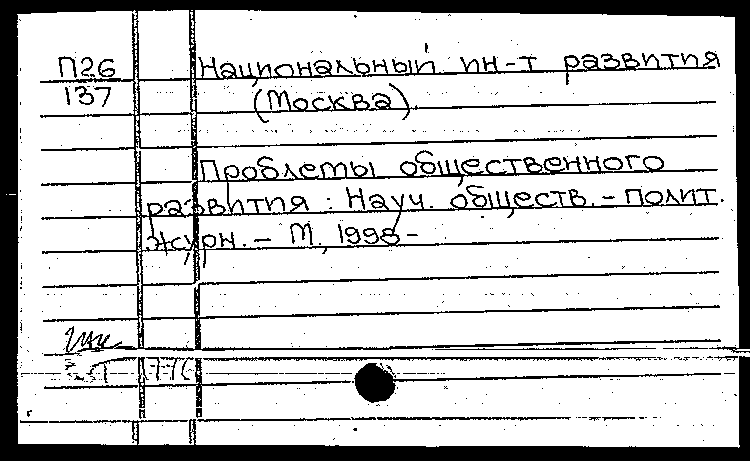 П26 Национальный ин-т развития
137 (Москва).
Проблемы общественного
развития : Науч. обществ. - полит.
журн. - М., 1998-